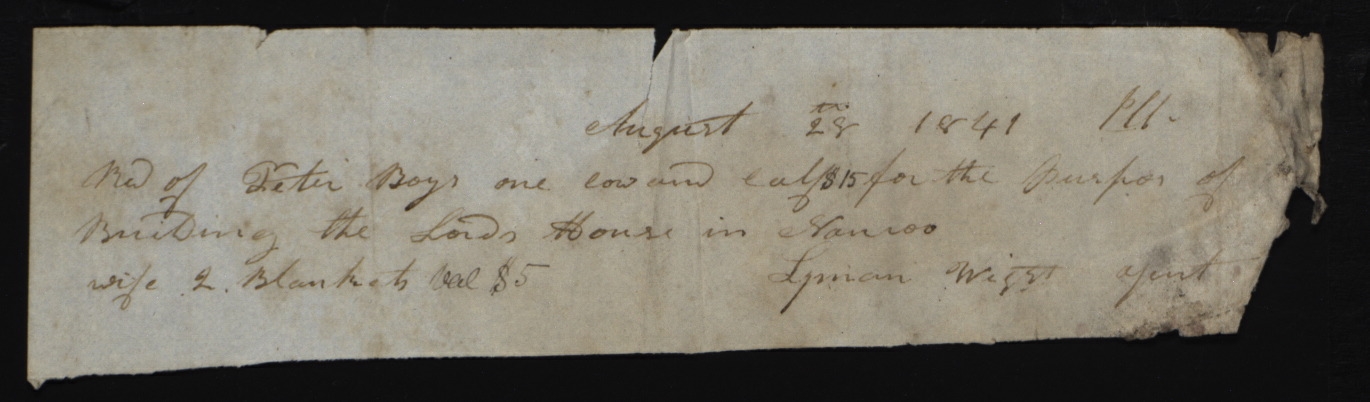 August 28th 1841 Ill.
Recd of Peter Boys one cow and calf $15 for the Purpos of
Building the Lords House in Nauvoo
wife 2 Blankets Val $5 Lyman Wight agent